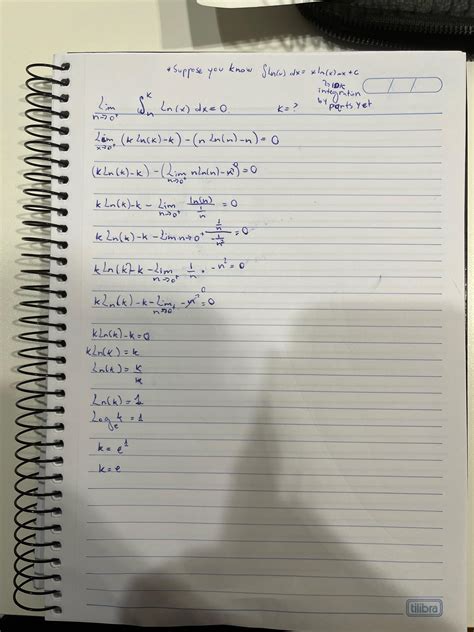 *Suppose you know ∫ln(x) dx = xln(x)-x+c
integration
by parts yet
lim n→0⁺ ∫ₙᵏ ln(x) dx = 0 k = ?
lim x→0⁺ (k ln(k)-k) - (n ln(n)-n) = 0
(k ln(k)-k) - (lim n→0⁺ n ln(n) - n⁰) = 0
k ln(k)-k - lim n→0⁺ ln(n)/(1/n) = 0
k ln(k)-k - lim n→0⁺ (1/n)/(-1/n²) = 0
k ln(k)-k - lim n→0⁺ 1/n · -n² = 0
k ln(k)-k - lim n→0⁺ -n⁰ = 0
k ln(k)-k = 0
k ln(k) = k
ln(k) = k/k
ln(k) = 1
logₑ k = 1
k = e¹
k = e
tilibra